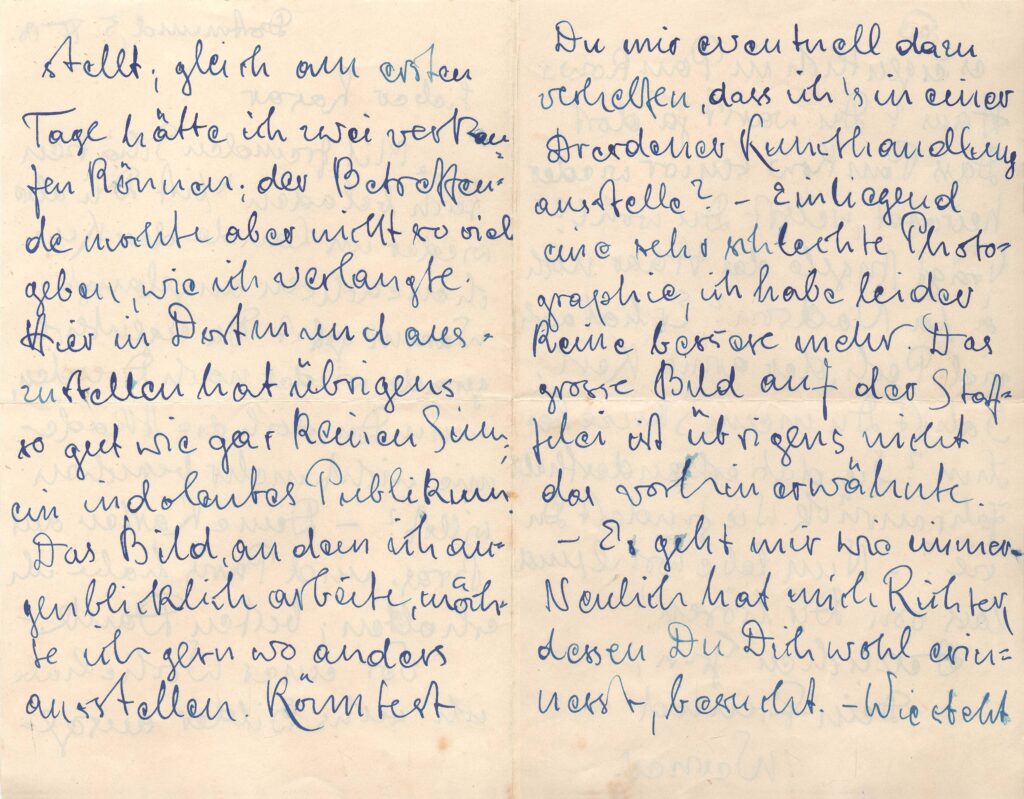 stellt; gleich am ersten
Tage hätte ich zwei verkau-
fen können. der Betreffen-
de mochte aber nicht so viel
geben, wie ich verlangte.
Hier in Dortmund aus-
zustellen hat übrigens
so gut wie gar keinen Sinn,
ein indolentes Publikum!
Das Bild, an dem ich au-
genblicklich arbeite, möch-
te ich gern wo anders
ausstellen. Könntest
Du mir eventuell dazu
verhelfen, dass ich's in einer
Dresdener Kunsthandlung
ausstelle? – Einliegend
eine sehr schlechte Photo-
graphie, ich habe leider
keine bessere mehr. Das
grosse Bild auf der Staf-
felei ist übrigens nicht
das vorhin erwähnte
– Es geht mir wie immer.
Neulich hat mich Richter,
dessen Du Dich wohl erin-
nerst, besucht. – Wie steht